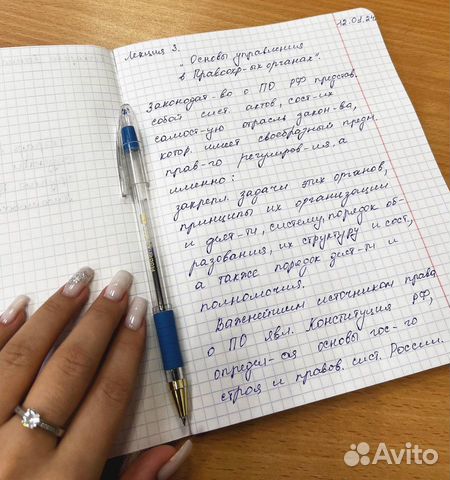 12.03.24
Лекция 3.
"Основы управления
в Правоохр-ых органах".
Законодат-во о ПО РФ представ.
собой сист. актов, сост-их
самост-ую отрасль закон-ва,
котор. имеет своеобразный предм.
прав-го регулиров-ия, а
именно:
закрепл. задачи этих органов,
принципы их организации
и деят-ти, систему, порядок об-
разования, их структуру и сост,
а также порядок деят-ти и
полномочия.
Важнейшим источником права
о ПО явл. Конституция РФ,
определ-ая основы гос-го
строя и правов. сист. России.
Avito